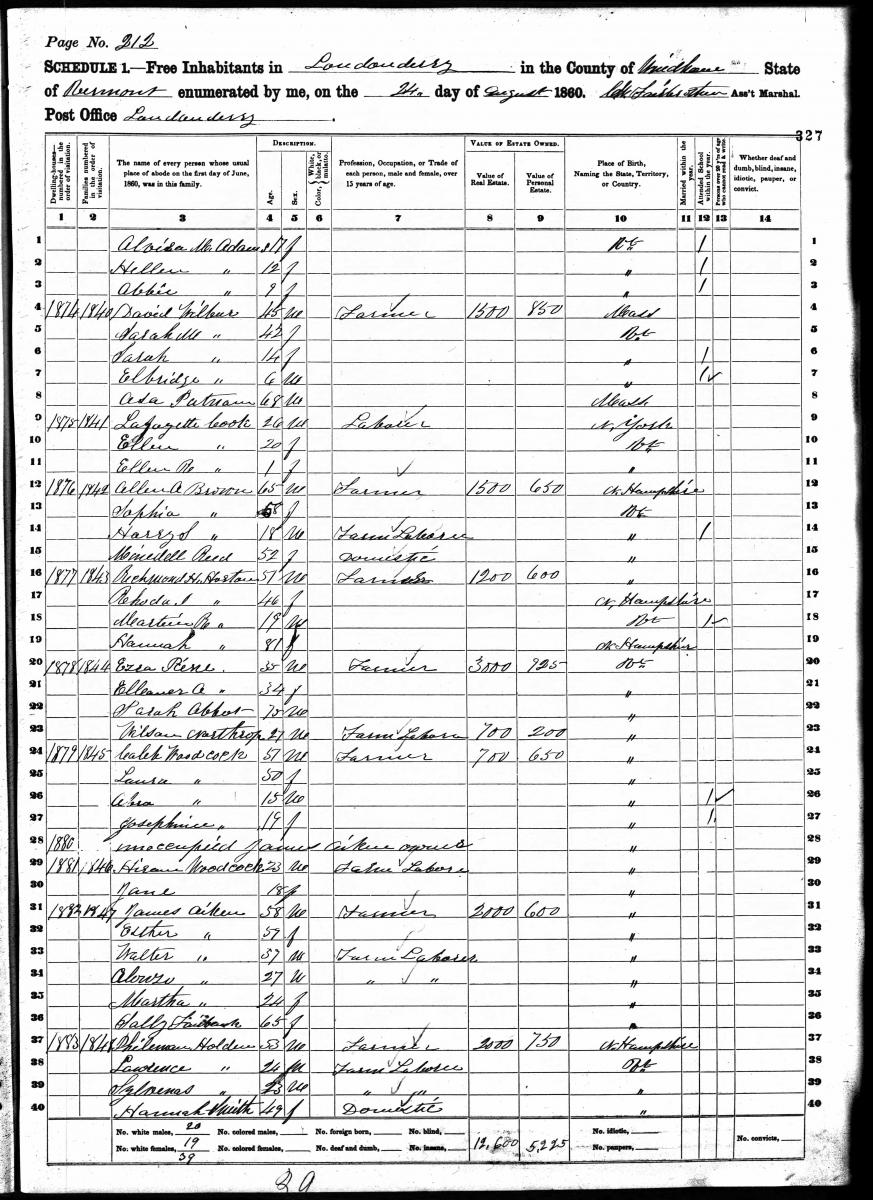 Page No. 212
SCHEDULE 1.—Free Inhabitants in Londonderry in the County of Windham State
of Vermont enumerated by me, on the 24 day of August 1860. Ass't Marshal.
Post Office Londonderry
327
Dwelling-houses— numbered in the order of visitation. Families numbered in the order of visitation. The name of every person whose usual place of abode on the first day of June, 1860, was in this family. DESCRIPTION. Age. Sex. Color, White, black, or mulatto. Profession, Occupation, or Trade of each person, male and female, over 15 years of age. VALUE OF ESTATE OWNED. Value of Real Estate. Value of Personal Estate. Place of Birth, Naming the State, Territory, or Country. Married within the year. Attended School within the year. Persons over 20 y'rs of age who cannot read & write. Whether deaf and dumb, blind, insane, idiotic, pauper, or convict.
1 2 3 4 5 6 7 8 9 10 11 12 13 14
1 M. Adams 17 f Vt 1 1
2 Hellen " 12 f " 1 2
3 Abbie " 9 f " 1 3
4 1874 1840 David Wilbur 45 m Farmer 1500 850 Mass 4
5 Sarah M " 42 f Vt 5
6 Sarah " 14 f " 1 6
7 Elbridge " 6 m " 1 7
8 Asa Putnam 68 m Mass 8
9 1875 1841 Lafayette Cook 26 m Laborer N. York 9
10 Ellen " 20 f Vt 10
11 Ellen R " 1 f " 11
12 1876 1842 Allen A Brown 65 m Farmer 1500 650 N. Hampshire 12
13 Sophia " 58 f Vt 13
14 Harry S " 18 m Farm Laborer " 1 14
15 Reed 52 f Domestic " 15
16 1877 1843 Richmond H. 51 m Farmer 1200 600 " 16
17 Rhoda " 46 f N. Hampshire 17
18 Martin R " 19 m Vt 1 18
19 Hannah " 81 f N. Hampshire 19
20 1878 1844 Ezra 35 m Farmer 3000 925 Vt 20
21 Elleanor A " 34 f " 21
22 Sarah Abbot 75 m " 22
23 Wilson Northrop 27 m Farm Labore 700 200 " 23
24 1879 1845 Caleb Woodcock 51 m Farmer 700 650 " 24
25 Laura " 50 f " 25
26 " 15 m " 1 26
27 Josephine " 19 f " 1 27
28 1880 unoccupied James Aiken owner " 28
29 1881 1846 Hiram Woodcock 23 m Farm Labore " 29
30 Jane 18 f " 30
31 1882 1847 James Aiken 58 m Farmer 2000 600 " 31
32 Esther " 59 f " 32
33 Walter " 37 m Farm Laborer " 33
34 Alonzo " 27 m " " " 34
35 Martha " 24 f " 35
36 Sally Fairbank 65 f " 36
37 1883 1848 Phileman Holden 53 m Farmer 2000 750 N. Hampshire 37
38 Lawrence " 24 m Farm Laborer Vt 38
39 Sylvenas " 23 m " " " 39
40 Hannah Smith 49 f Domestic " 40
No. white males, 20 No. colored males, No. foreign born, No. blind, No. idiotic,
No. white females, 19 No. colored females, No. deaf and dumb, No. insane, 12,600 5,225 No. paupers, No. convicts,
39
39